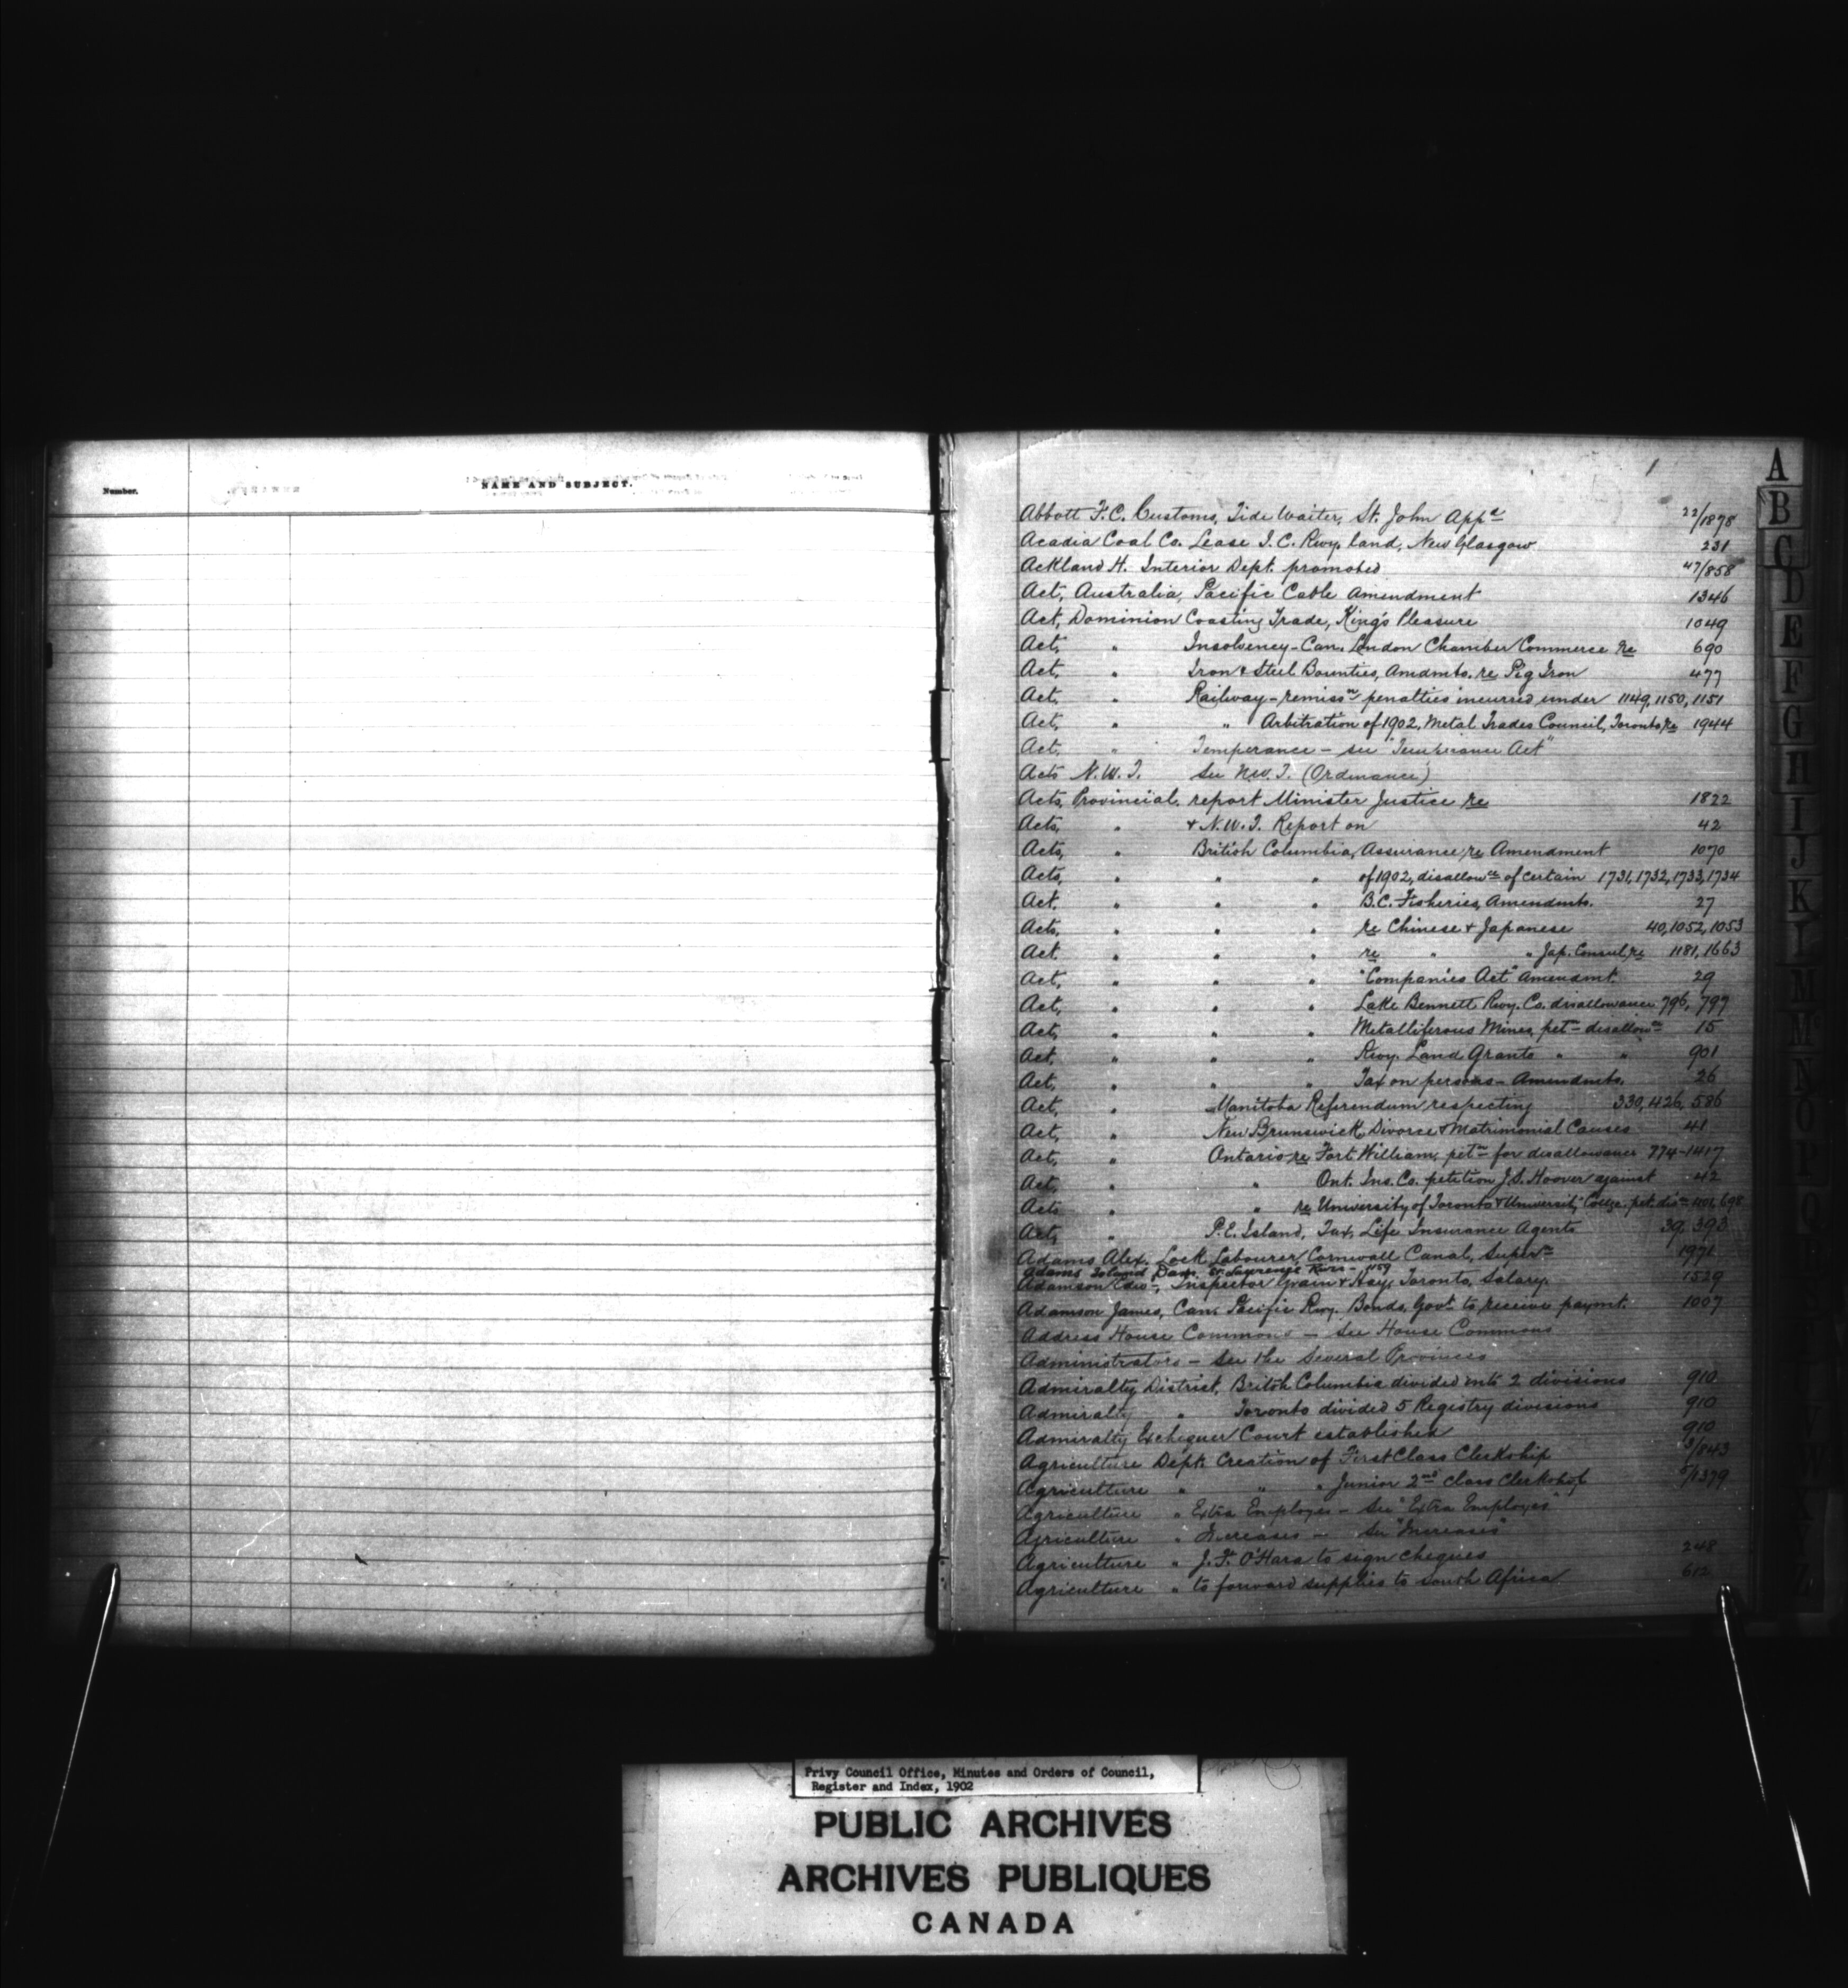 Number.
NAME AND SUBJECT.
1
Abbott F. C. Customs, Tide Waiter, St. John App^d 22/1878
Acadia Coal Co. Lease I. C. Rwy. land, New Glasgow 231
Ackland H. Interior Dept. promoted 47/858
Act, Australia, Pacific Cable Amendment 1346
Act, Dominion Coasting Trade, King's Pleasure 1049
Act, " Insolvency - Can. London Chamber Commerce re 690
Act, " Iron & Steel Bounties, Amdmts. re Pig Iron 477
Act, " Railway - remiss^n penalties incurred under 1149, 1150, 1151
Act, " " Arbitration of 1902, Metal Trades Council, Toronto, re 1944
Act, " Temperance - see "Temperance Act"
Acts N. W. T. See N.W. T. (Ordinance)
Acts, Provincial, report Minister Justice re 1822
Acts, " & N. W. T. Report on 42
Acts, " British Columbia, Assurance re Amendment 1070
Acts, " " " of 1902, disallow^ce of certain 1731, 1732, 1733, 1734
Act. " " " B. C. Fisheries, Amendmts. 27
Acts, " " " re Chinese & Japanese 40, 1052, 1053
Act. " " " re " " Jap. Consul, re 1181, 1663
Act, " " " "Companies Act" amendmt. 29
Act, " " " Lake Bennett Rwy. Co. disallowance 796, 797
Act, " " " Metalliferous Mines, pet^n disallow^ce 15
Act, " " " Rwy. Land Grants " " 901
Act, " " " Tax on persons - Amendmts. 26
Act, " Manitoba Referendum, respecting 330, 426, 586
Act, " New Brunswick, Divorce & Matrimonial Causes 41
Act, " Ontario, re Fort William, pet^n for disallowance 774-1417
Act, " " Ont. Ins. Co. petition J. S. Hoover against 42
Acts " " re University of Toronto & University College. pet. dis^ce 1101, 698
Act, " P. E. Island, Tax, Life Insurance Agents 39, 393
Adams Alex. Lock Labourer, Cornwall Canal, Super^n 1971
Adams Island Dam, St. Lawrence River - 1159
Adamson Edw^d, Inspector Grain & Hay, Toronto, Salary. 1529
Adamson James, Can. Pacific Rwy. Bonds, Gov^t to receive paymt. 1007
Address House Commons - See House Commons
Administrators - See the Several Provinces
Admiralty District, British Columbia divided into 2 divisions 910
Admiralty " Toronto divided 5 Registry divisions 910
Admiralty Exchequer Court established 910
Agriculture Dept. Creation of First Class Clerkship 3/843
Agriculture " " " Junior 2^nd class Clerkship /1379
Agriculture " Extra Employes - See "Extra Employes"
Agriculture " Increases - See "Increases"
Agriculture " J. F. O'Hara to sign cheques 248
Agriculture " to forward supplies to South Africa 612
A
B
C
D
E
F
G
H
I
J
K
L
M
N
O
P
Q
Privy Council Office, Minutes and Orders of Council,
Register and Index, 1902
PUBLIC ARCHIVES
ARCHIVES PUBLIQUES
CANADA